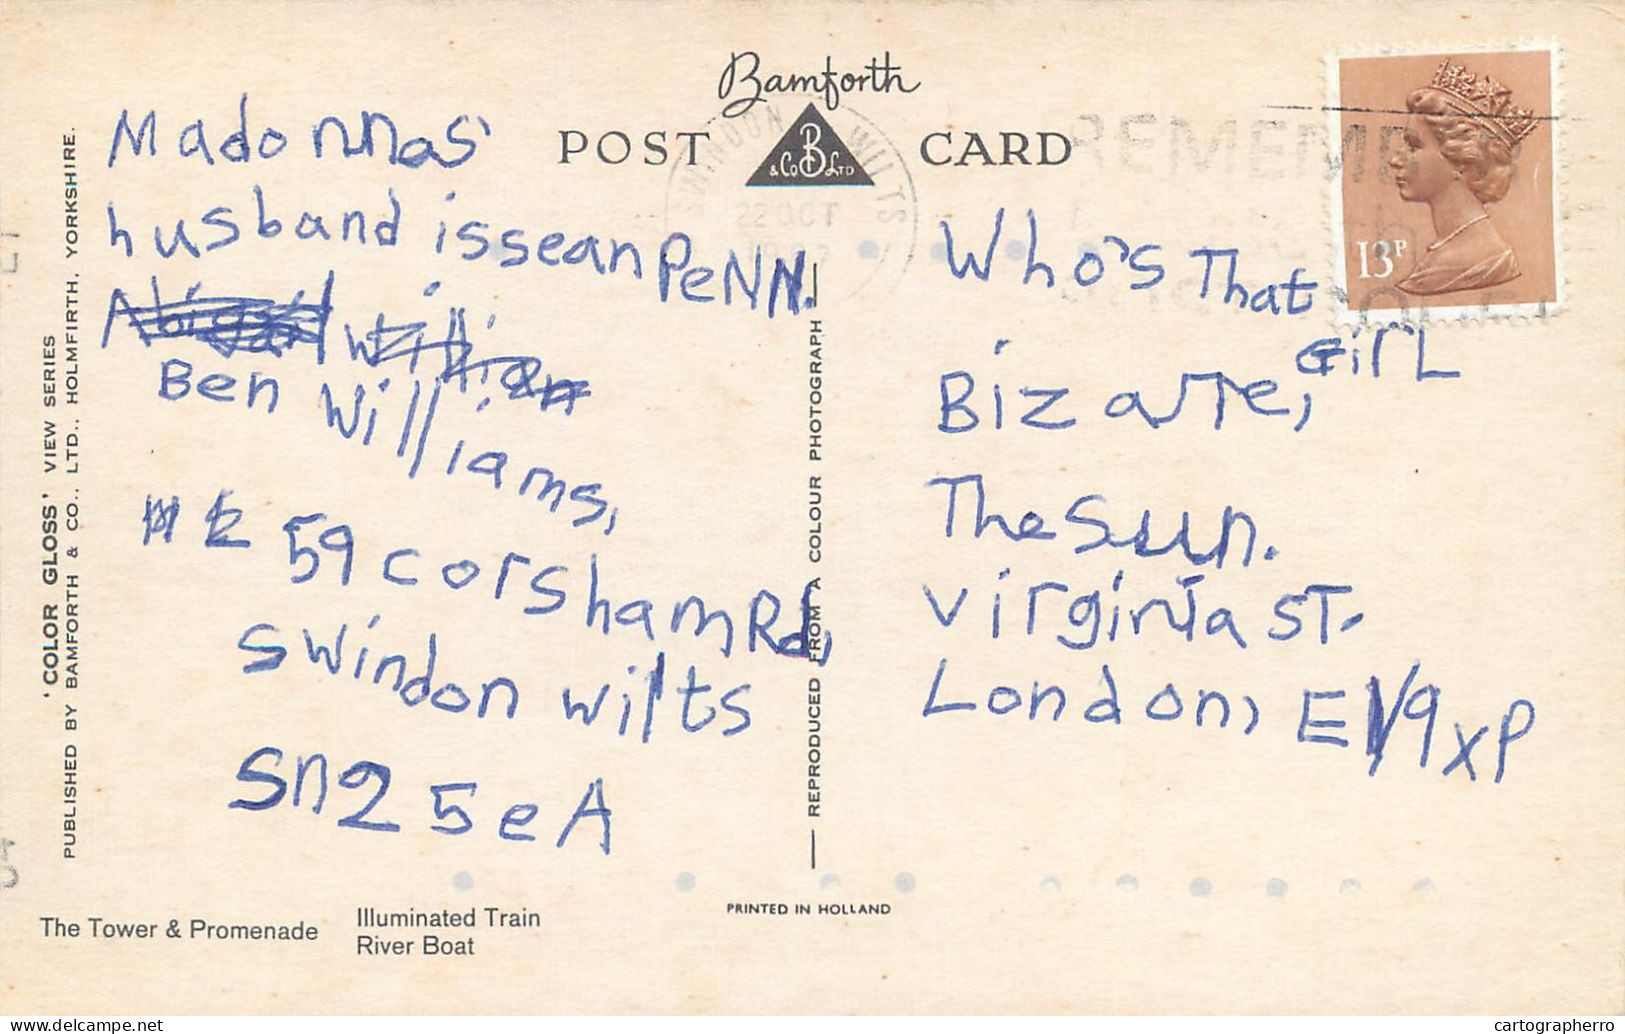 Bamforth
POST CARD
& Co B LTD
SWINDON WILTS
22 OCT
REMEMB
13P
Madonnas'
husband is sean PeNN.
Abigail Willian
Ben Williams,
59 corsham Rd,
swindon wilts
Sn2 5eA
Who's That
GirL
Bizarre,
The Sun.
virginia ST.
London, E1 9XP
'COLOR GLOSS' VIEW SERIES
PUBLISHED BY BAMFORTH & CO., LTD., HOLMFIRTH, YORKSHIRE.
REPRODUCED FROM A COLOUR PHOTOGRAPH
PRINTED IN HOLLAND
The Tower & Promenade
Illuminated Train
River Boat
delcampe.net
cartographerro